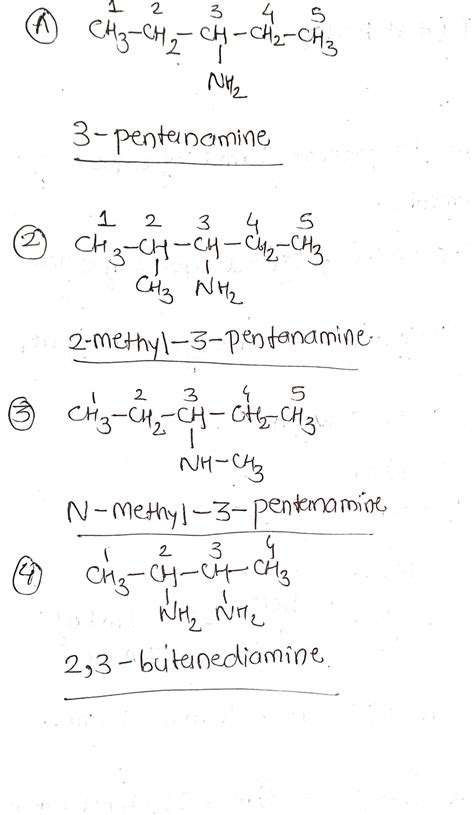 1 2 3 4 5
① CH3-CH2-CH-CH2-CH3
NH2
3-pentanamine
1 2 3 4 5
② CH3-CH-CH-CH2-CH3
CH3 NH2
2-methyl-3-pentanamine
1 2 3 4 5
③ CH3-CH2-CH-CH2-CH3
NH-CH3
N-methyl-3-pentanamine
1 2 3 4
④ CH3-CH-CH-CH3
NH2 NH2
2,3-butanediamine